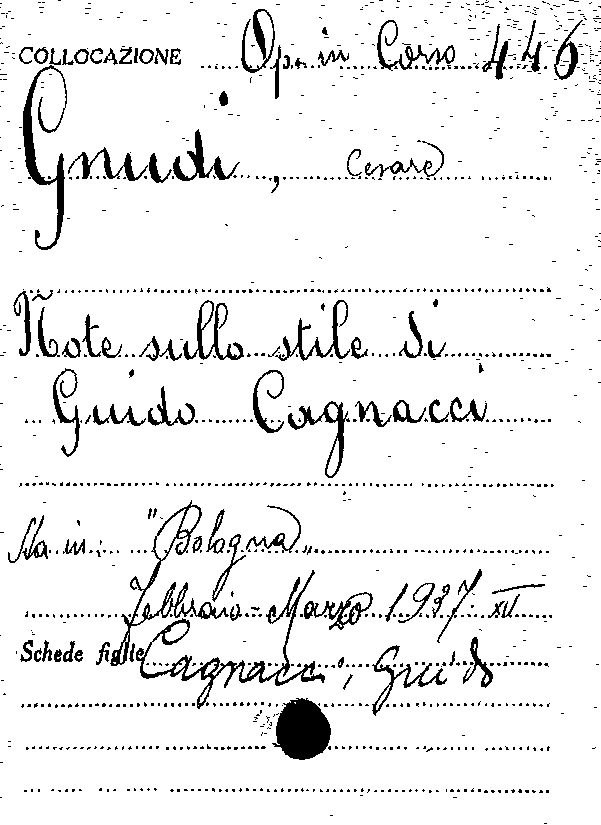 COLLOCAZIONE Op. in Corso 446
Gnudi, Cesare
Note sullo stile di
Guido Cagnacci
Sta in: "Bologna"
Febbraio-Marzo 1937. XV
Schede figlie Cagnacci, Guido